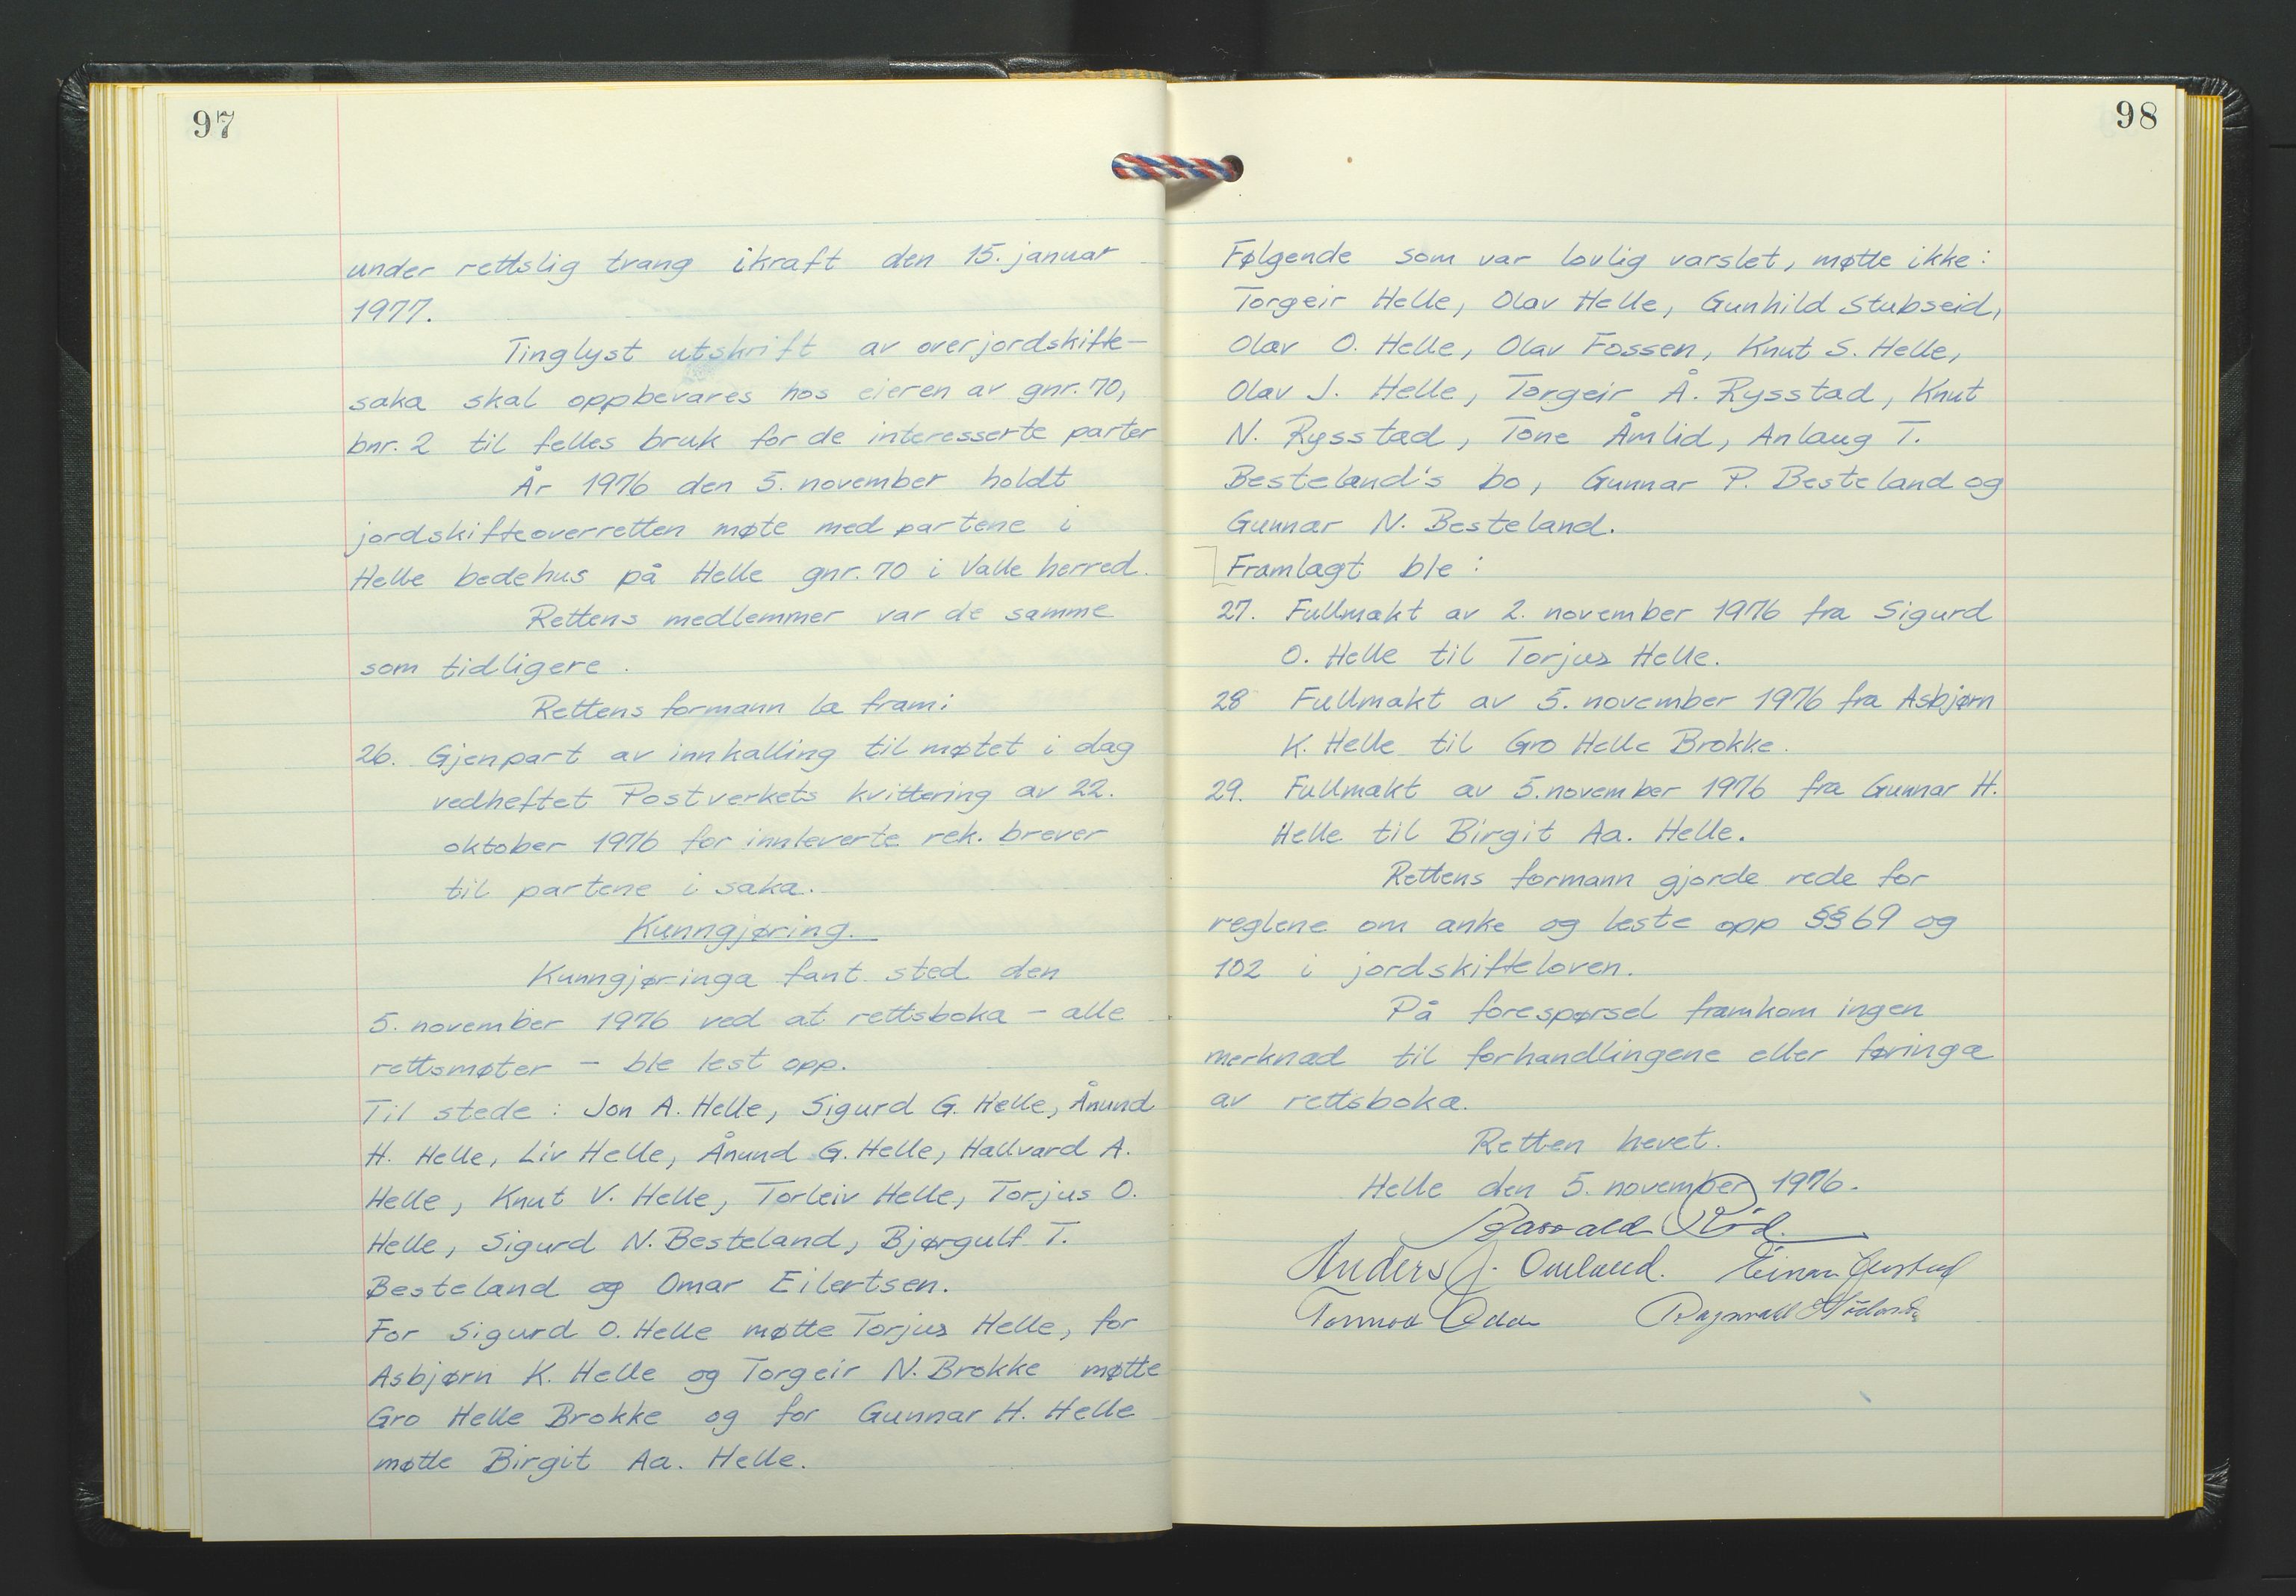 97
under rettslig tvang ikraft den 15. januar
1977.
Tinglyst utskrift av overjordskifte-
saka skal oppbevares hos eieren av gnr. 70,
bnr. 2 til felles bruk for de interesserte parter
År 1976 den 5. november holdt
jordskifteoverretten møte med partene i
Helle bedehus på Helle gnr. 70 i Valle herred.
Rettens medlemmer var de samme
som tidligere.
Rettens formann la fram:
26. Gjenpart av innkalling til møtet i dag
vedheftet Postverkets kvittering av 22.
oktober 1976 for innleverte rek. brever
til partene i saka.
Kunngjøring.
Kunngjøringa fant sted den
5. november 1976 ved at rettsboka - alle
rettsmøter - ble lest opp.
Til stede : Jon A. Helle, Sigurd G. Helle, Ånund
H. Helle, Liv Helle, Ånund G. Helle, Hallvard A.
Helle, Knut V. Helle, Torleiv Helle, Torjus O.
Helle, Sigurd N. Besteland, Bjørgulf T.
Besteland og Omar Eilertsen.
For Sigurd O. Helle møtte Torjus Helle, for
Asbjørn K. Helle og Torgeir N. Brokke møtte
Gro Helle Brokke og for Gunnar H. Helle
møtte Birgit Aa. Helle.
98
Følgende som var lovlig varslet, møtte ikke:
Torgeir Helle, Olav Helle, Gunhild Stubseid,
Olav O. Helle, Olav Fossen, Knut S. Helle,
Olav J. Helle, Torgeir Å. Rysstad, Knut
N. Rysstad, Tone Åmlid, Anlaug T.
Besteland's bo, Gunnar P. Besteland og
Gunnar N. Besteland.
Framlagt ble :
27. Fullmakt av 2. november 1976 fra Sigurd
O. Helle til Torjus Helle.
28 Fullmakt av 5. november 1976 fra Asbjørn
K. Helle til Gro Helle Brokke.
29. Fullmakt av 5. november 1976 fra Gunnar H.
Helle til Birgit Aa. Helle.
Rettens formann gjorde rede for
reglene om anke og leste opp §§ 69 og
102 i jordskifteloven.
På forespørsel framkom ingen
merknad til forhandlingene eller føringa
av rettsboka.
Retten hevet.
Helle den 5. november 1976.
Anders J. Omland. Einar
Tormod Ragnvald